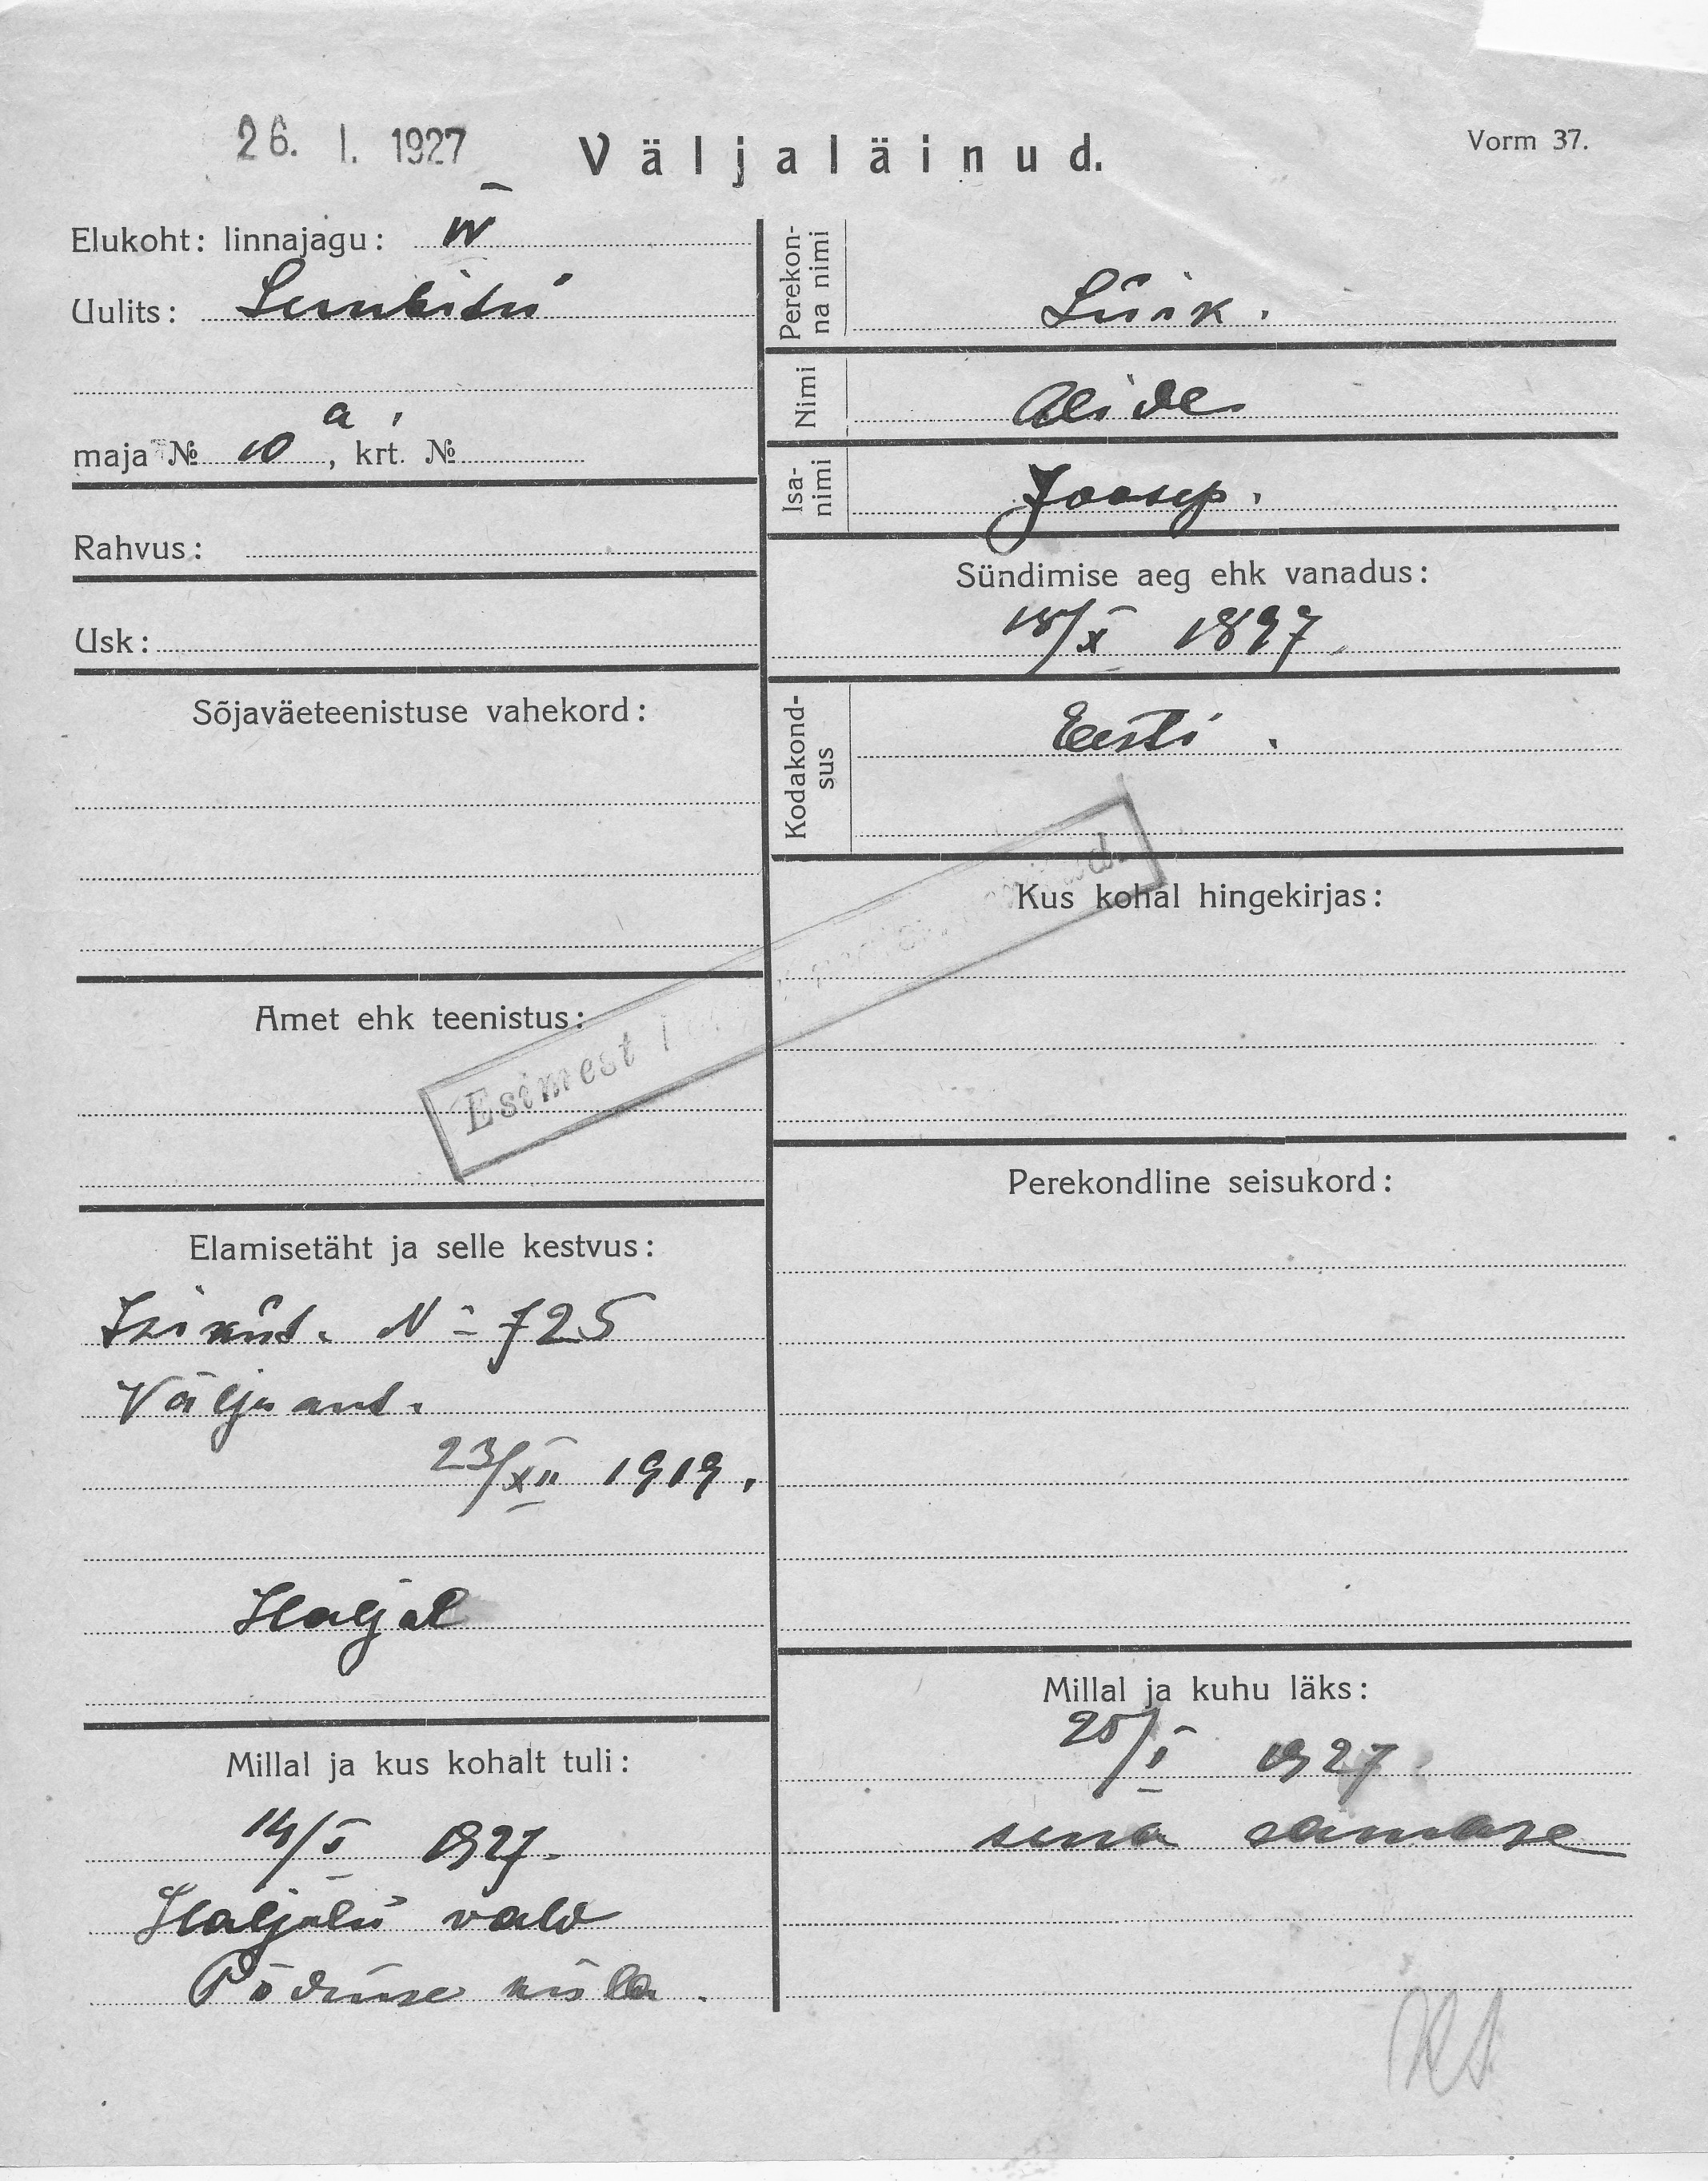 26. I. 1927
Väljaläinud.
Vorm 37.
Elukoht: linnajagu: IV
Uulits: Lembitu
maja № 10 a, krt. №
Rahvus:
Usk:
Sõjaväeteenistuse vahekord:
Amet ehk teenistus:
Esimest
Elamisetäht ja selle kestvus:
Isikut. № 725
Välja ant.
23/XII 1919.
Haljal
Millal ja kus kohalt tuli:
14/I 1927.
Haljala vald
Põdruse küla.
Perekonna nimi
Luik.
Nimi
Alide
Isanimi
Joosep.
Sündimise aeg ehk vanadus:
15/X 1897.
Kodakondsus
Eesti.
Kus kohal hingekirjas:
Perekondline seisukord:
Millal ja kuhu läks:
25/I 1927.
sinna samase